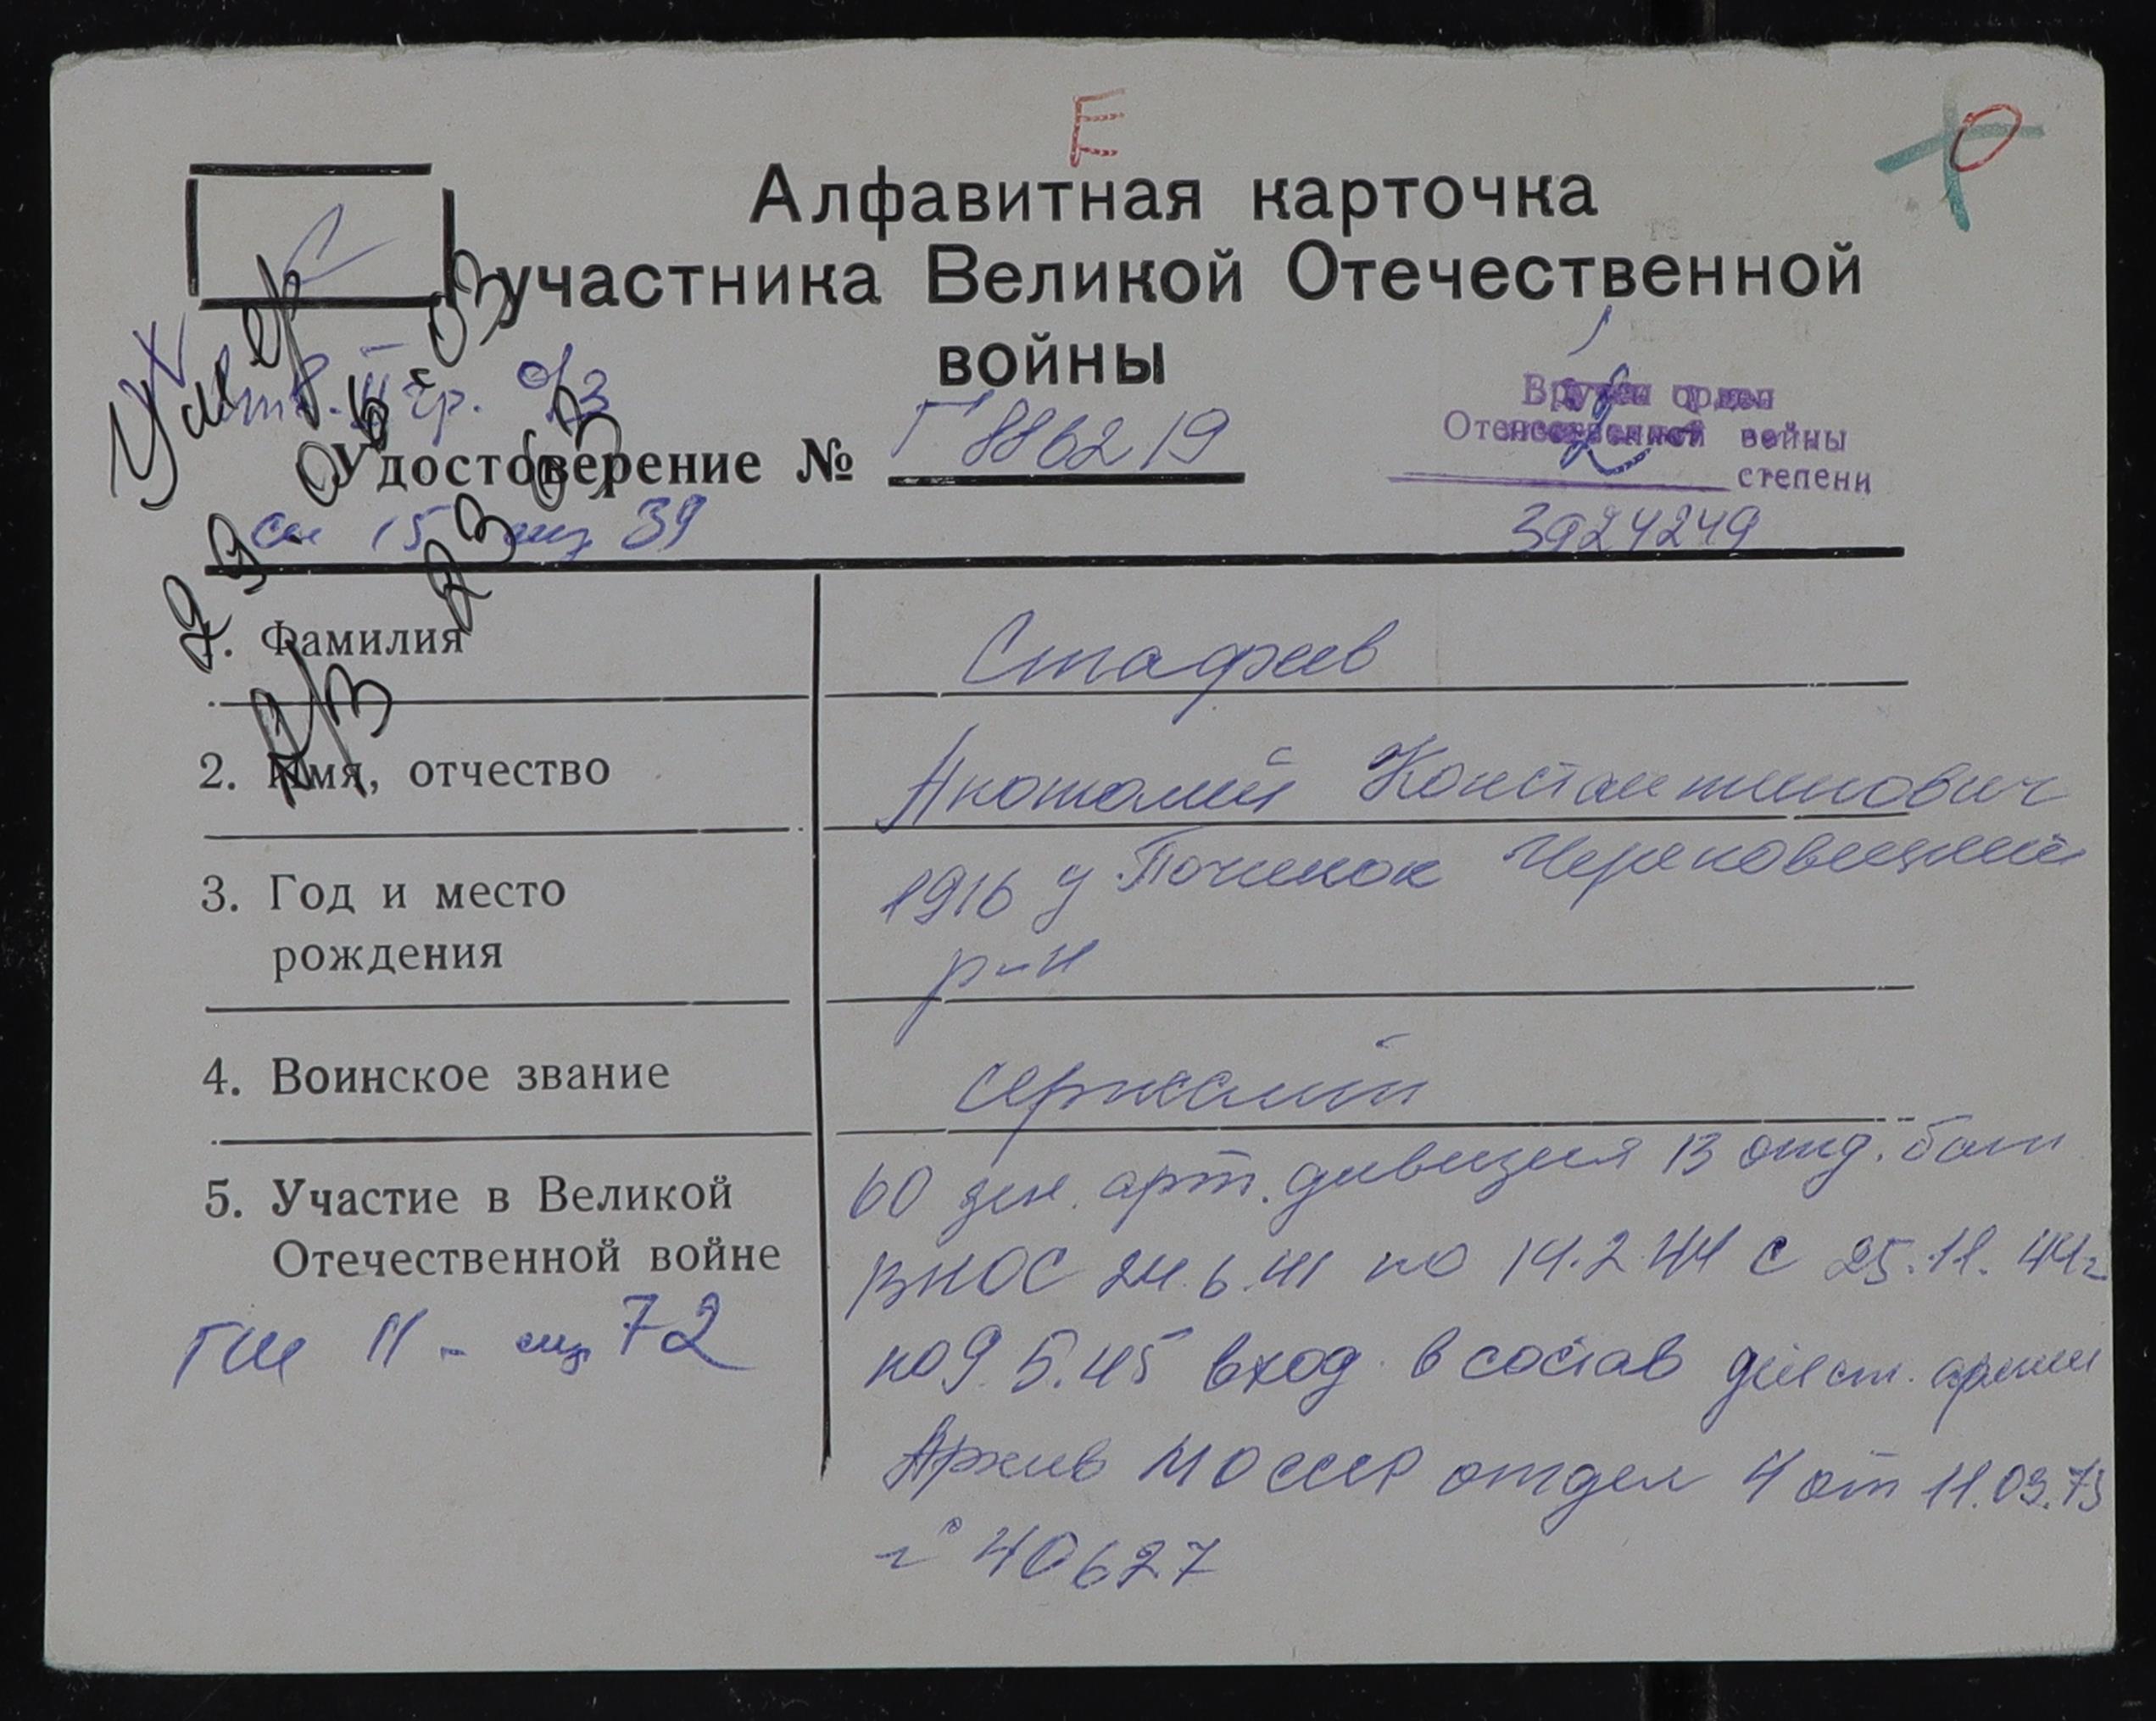 Е
О
Алфавитная карточка
участника Великой Отечественной
войны
Умер
отв. II гр. о/з
Удостоверение № Г 886219
Вручен орден
Отечественной войны
2 степени
3924249
1. Фамилия Стафеев
2. Имя, отчество Анатолий Константинович
3. Год и место рождения 1916 д Починок Череповецкий
р-н
4. Воинское звание сержант
5. Участие в Великой Отечественной войне
60 зен. арт. дивизия 13 отд. бат
ВНОС 24.6.41 по 14.2.44 с 25.11.44г
по 9.5.45 вход. в состав действ. армии
Архив МО СССР отдел 4 от 11.03.73
№ 40627
72